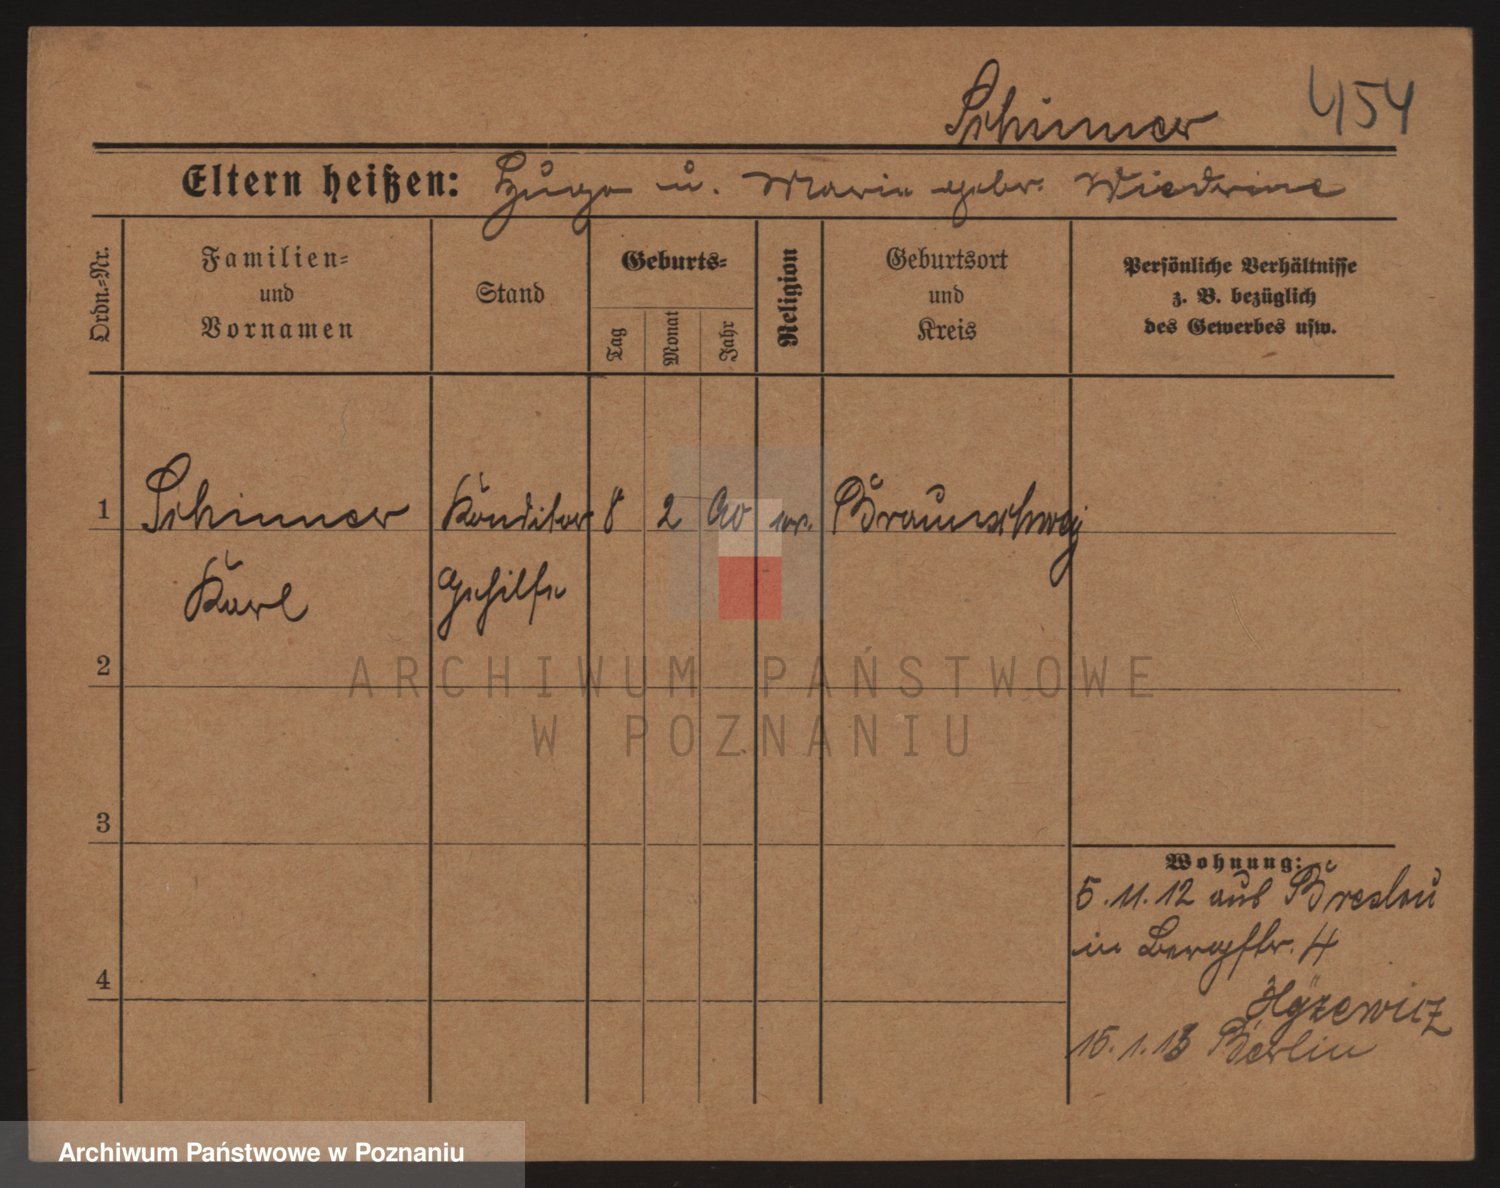 Schinner 454
Eltern heißen: Hugo u. Marie gebr. Wiedrine
Ordn.-Nr.
Familien- und Vornamen
Stand
Geburts-
Tag
Monat
Jahr
Religion
Geburtsort und Kreis
Persönliche Verhältnisse
z. B. bezüglich
des Gewerbes usw.
1 Schinner Konditor 8 2 90 ev. Braunschweig
Karl Gehilfe
2
3
4
Wohnung:
5.11.12 aus Breslau
in Bergstr. 4
15.1.13 Berlin
ARCHIWUM PAŃSTWOWE
W POZNANIU
Archiwum Państwowe w Poznaniu